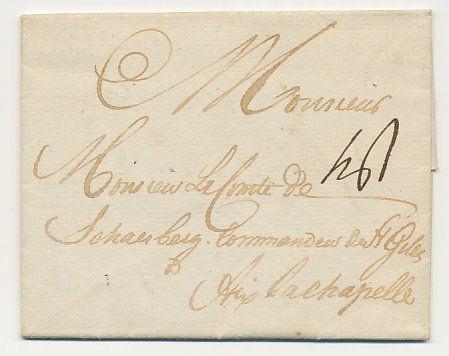 Monsieur
Monsieur Le Comte De
Schaesberg Commandeur de
a
Aix la chapelle